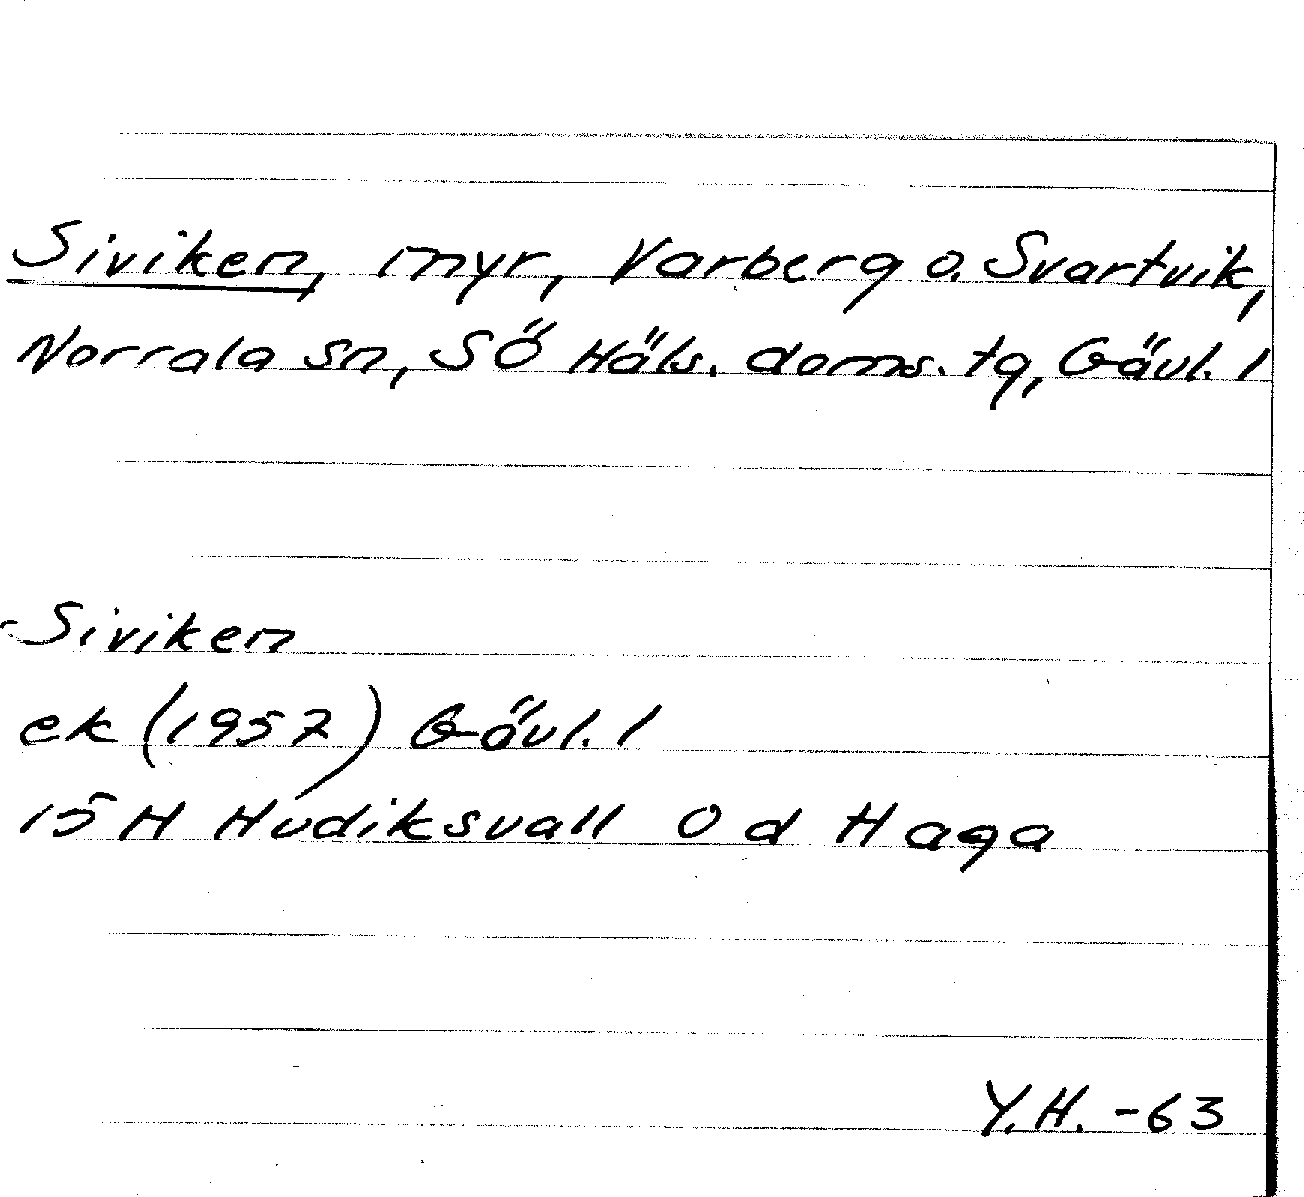 Siviken, myr, Varberg o. Svartvik,
Norrala sn, SÖ Häls. doms. tg, Gävl. l
Siviken
ek (1957) Gävl. l
15 H Hudiksvall 0 d Haga
Y.H. -63